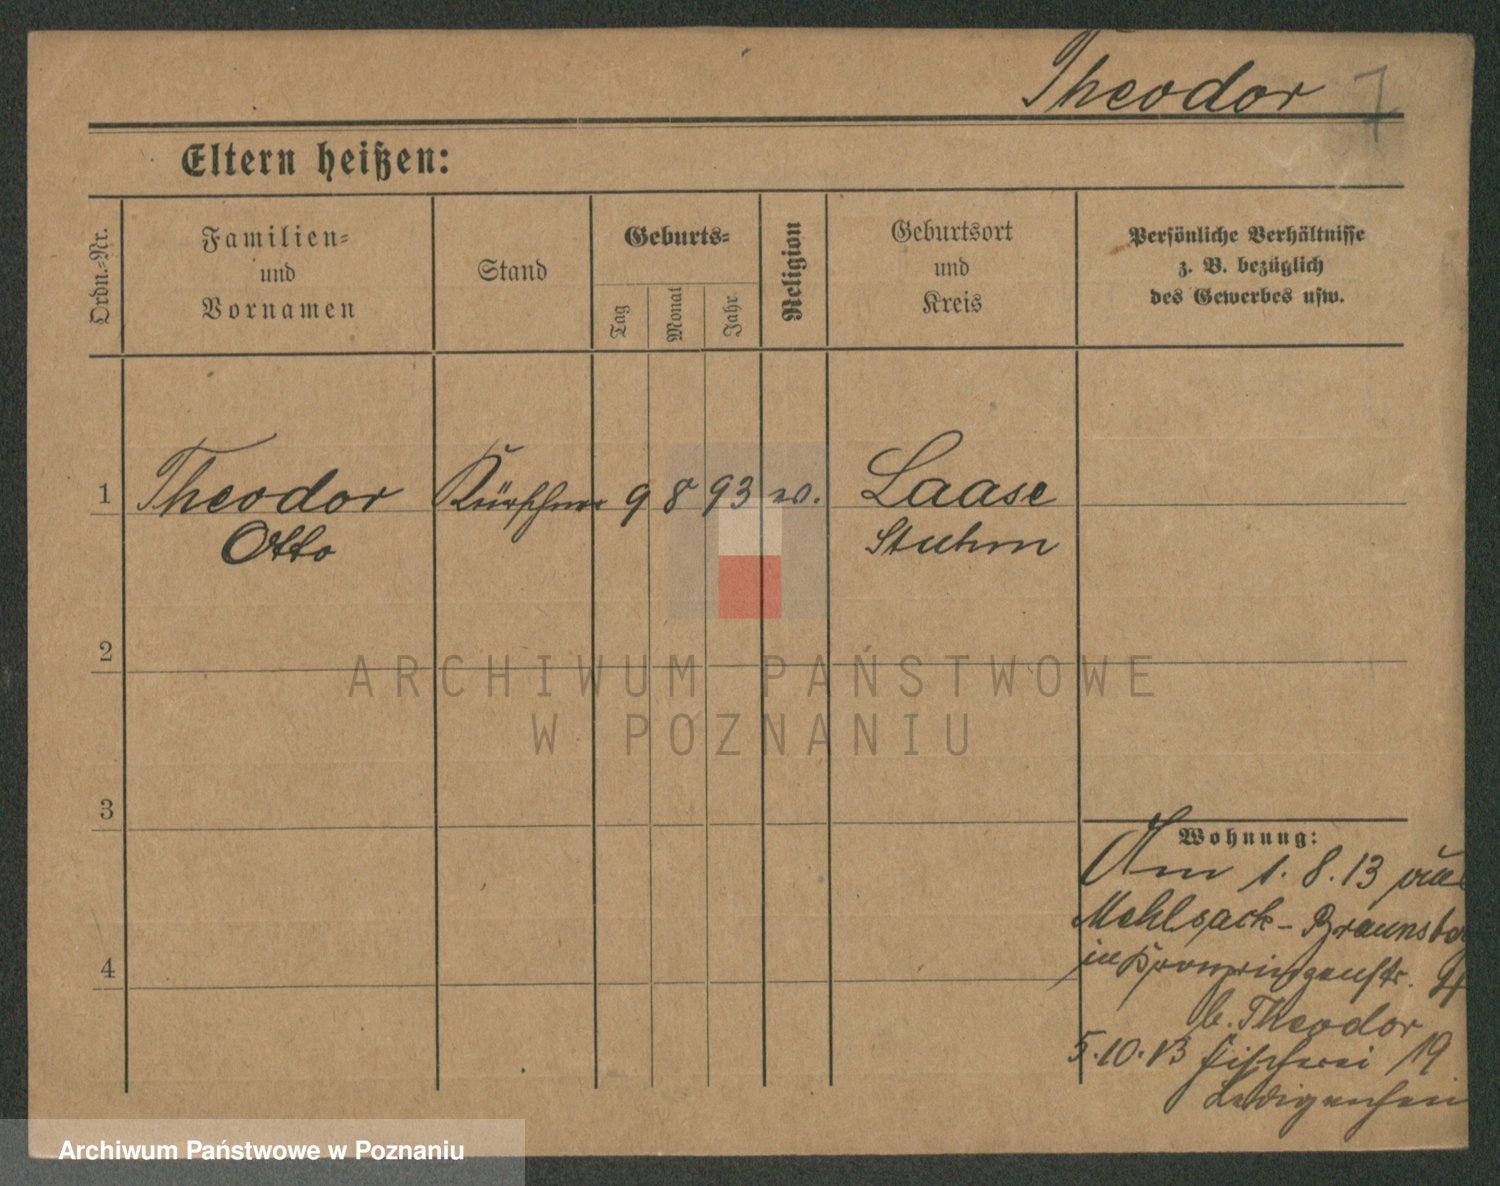 Theodor 7
Eltern heißen:
Ordn.-Nr.
Familien-
und
Vornamen
Stand
Geburts-
Tag
Monat
Jahr
Religion
Geburtsort
und
Kreis
Persönliche Verhältnisse
z. B. bezüglich
des Gewerbes usw.
1 Theodor Kürschner 9 8 93 Laase
Otto Stuhm
2
3
4
Wohnung:
Am 1. 8. 13
Mehlsack - Braunsbg
in Kronprinzenstr.
b. Theodor
5.10.13 Fischerei 19
Ledigenheim
ARCHIWUM PAŃSTWOWE
W POZNANIU
Archiwum Państwowe w Poznaniu